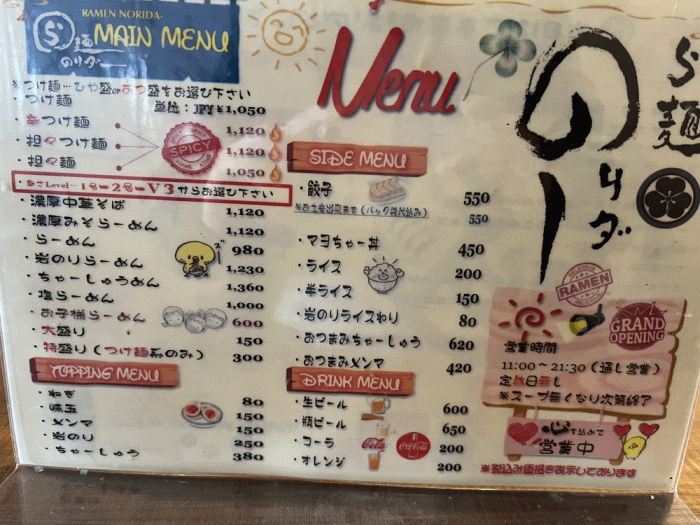 RAMEN NORIDA-
MAIN MENU
らー麺
のりダー
※つけ麺…ひや盛orあつ盛をお選び下さい
単位：JPY
・つけ麺 ¥1,050
・辛つけ麺 1,120
・担々つけ麺 1,120
・担々麺 1,050
SPICY
・辛さLevel…1号➡2号➡V3からお選び下さい
・濃厚中華そば 1,120
・濃厚みそらーめん 1,120
・らーめん 980
・岩のりらーめん 1,230
・ちゃーしゅうめん 1,360
・塩らーめん 1,000
・お子様らーめん 600
・大盛り 150
・特盛り（つけ麺系のみ） 300
TOPPING MENU
・ねぎ 80
・味玉 150
・メンマ 150
・岩のり 250
・ちゃーしゅう 380
Menu
SIDE MENU
・餃子 550
※お土産出来ます（パック袋代込み） 550
・マヨちゃー丼 450
・ライス 200
・半ライス 150
・岩のりライスわり 80
・おつまみちゃーしゅう 620
・おつまみメンマ 420
DRINK MENU
・生ビール 600
・瓶ビール 650
・コーラ 200
Coca-Cola
・オレンジ 200
ら麺
のりダー
RAMEN
GRAND
OPENING
営業時間
11:00～21:30（通し営業）
定休日無し
※スープ無くなり次第終了
心を込めて
営業中
※税込み価格を表示しております